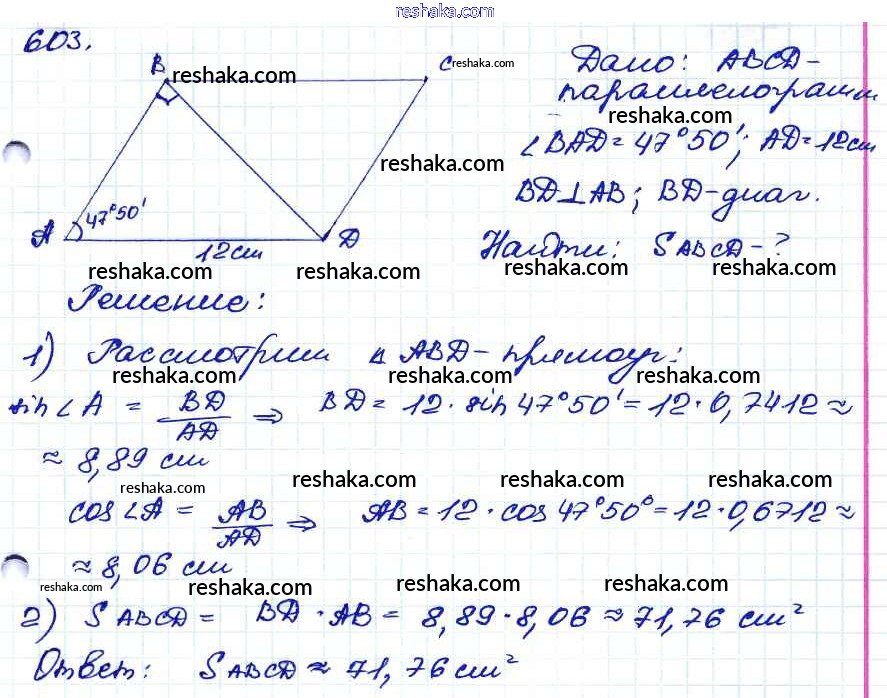 reshaka.com
603.
B reshaka.com C reshaka.com
Дано: ABCD -
параллелограмм
reshaka.com
∠BAD = 47°50'; AD = 12 см
reshaka.com
BD ⊥ AB; BD - диаг.
A 47°50' 12 см D
Найти: S ABCD - ?
reshaka.com reshaka.com reshaka.com reshaka.com
Решение:
1) Рассмотрим △ ABD - прямоуг:
reshaka.com reshaka.com reshaka.com
sin ∠A = BD/AD ⇒ BD = 12 · sin 47°50' = 12 · 0,7412 ≈
≈ 8,89 см
reshaka.com reshaka.com reshaka.com reshaka.com
cos ∠A = AB/AD ⇒ AB = 12 · cos 47°50° = 12 · 0,6712 ≈
≈ 8,06 см
reshaka.com reshaka.com reshaka.com reshaka.com
2) S ABCD = BD · AB = 8,89 · 8,06 ≈ 71,76 см²
Ответ: S ABCD ≈ 71,76 см²